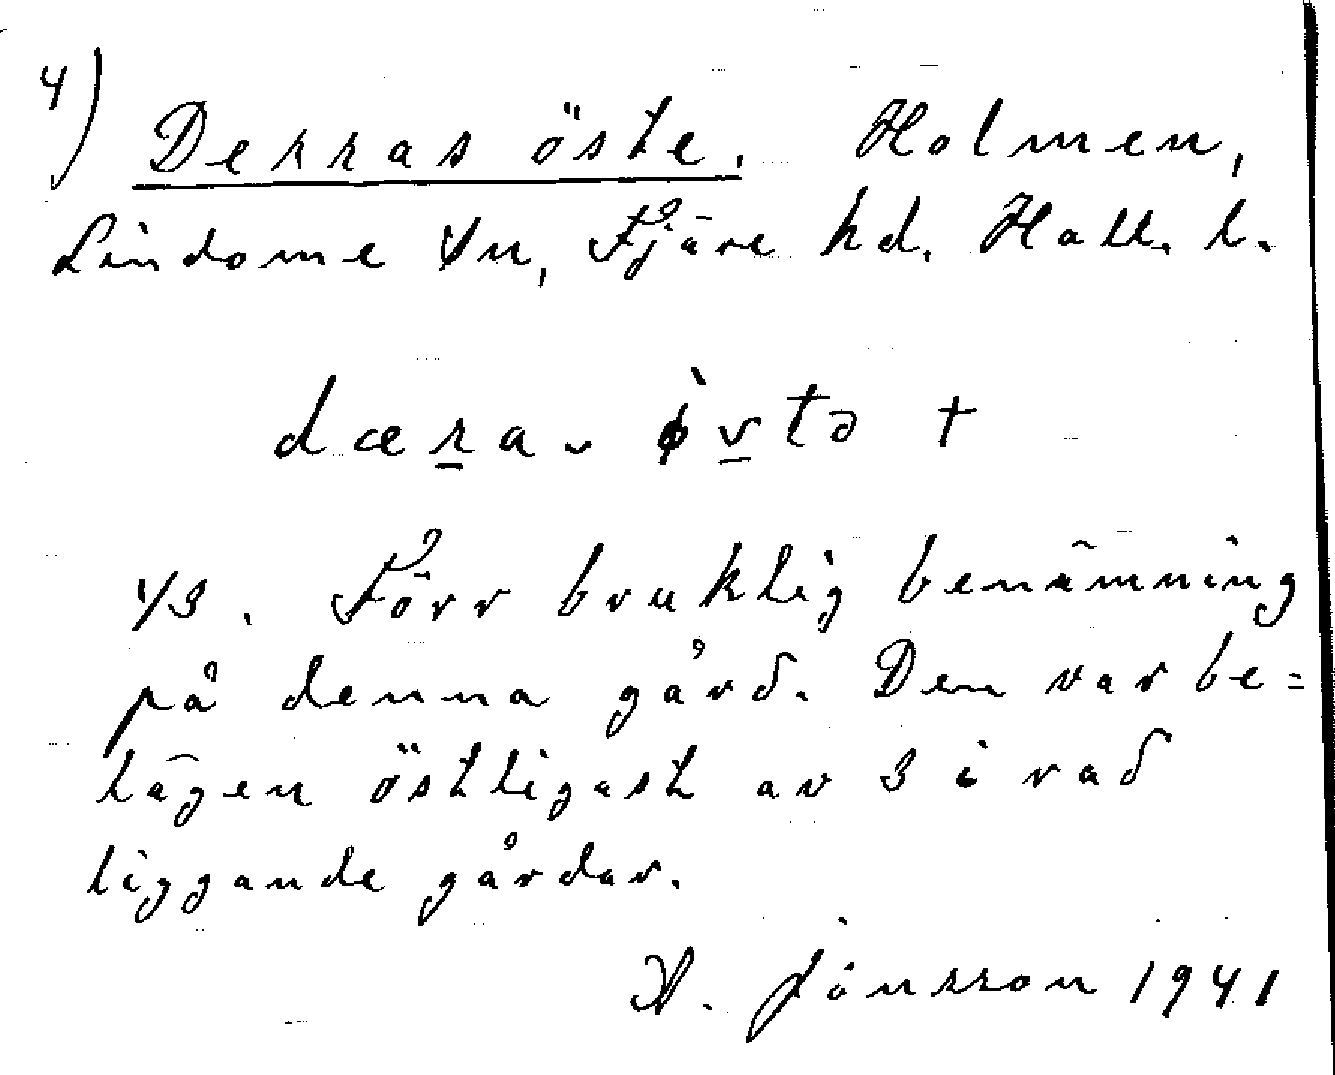 4) Derras öste. Holmen,
Lindome sn, Fjäre hd. Hall. l.
dæra
1/3. Förr bruklig benämning
på denna gård. Den var be=
lägen östligast av 3 i rad
liggande gårdar.
A. Jönsson 1941